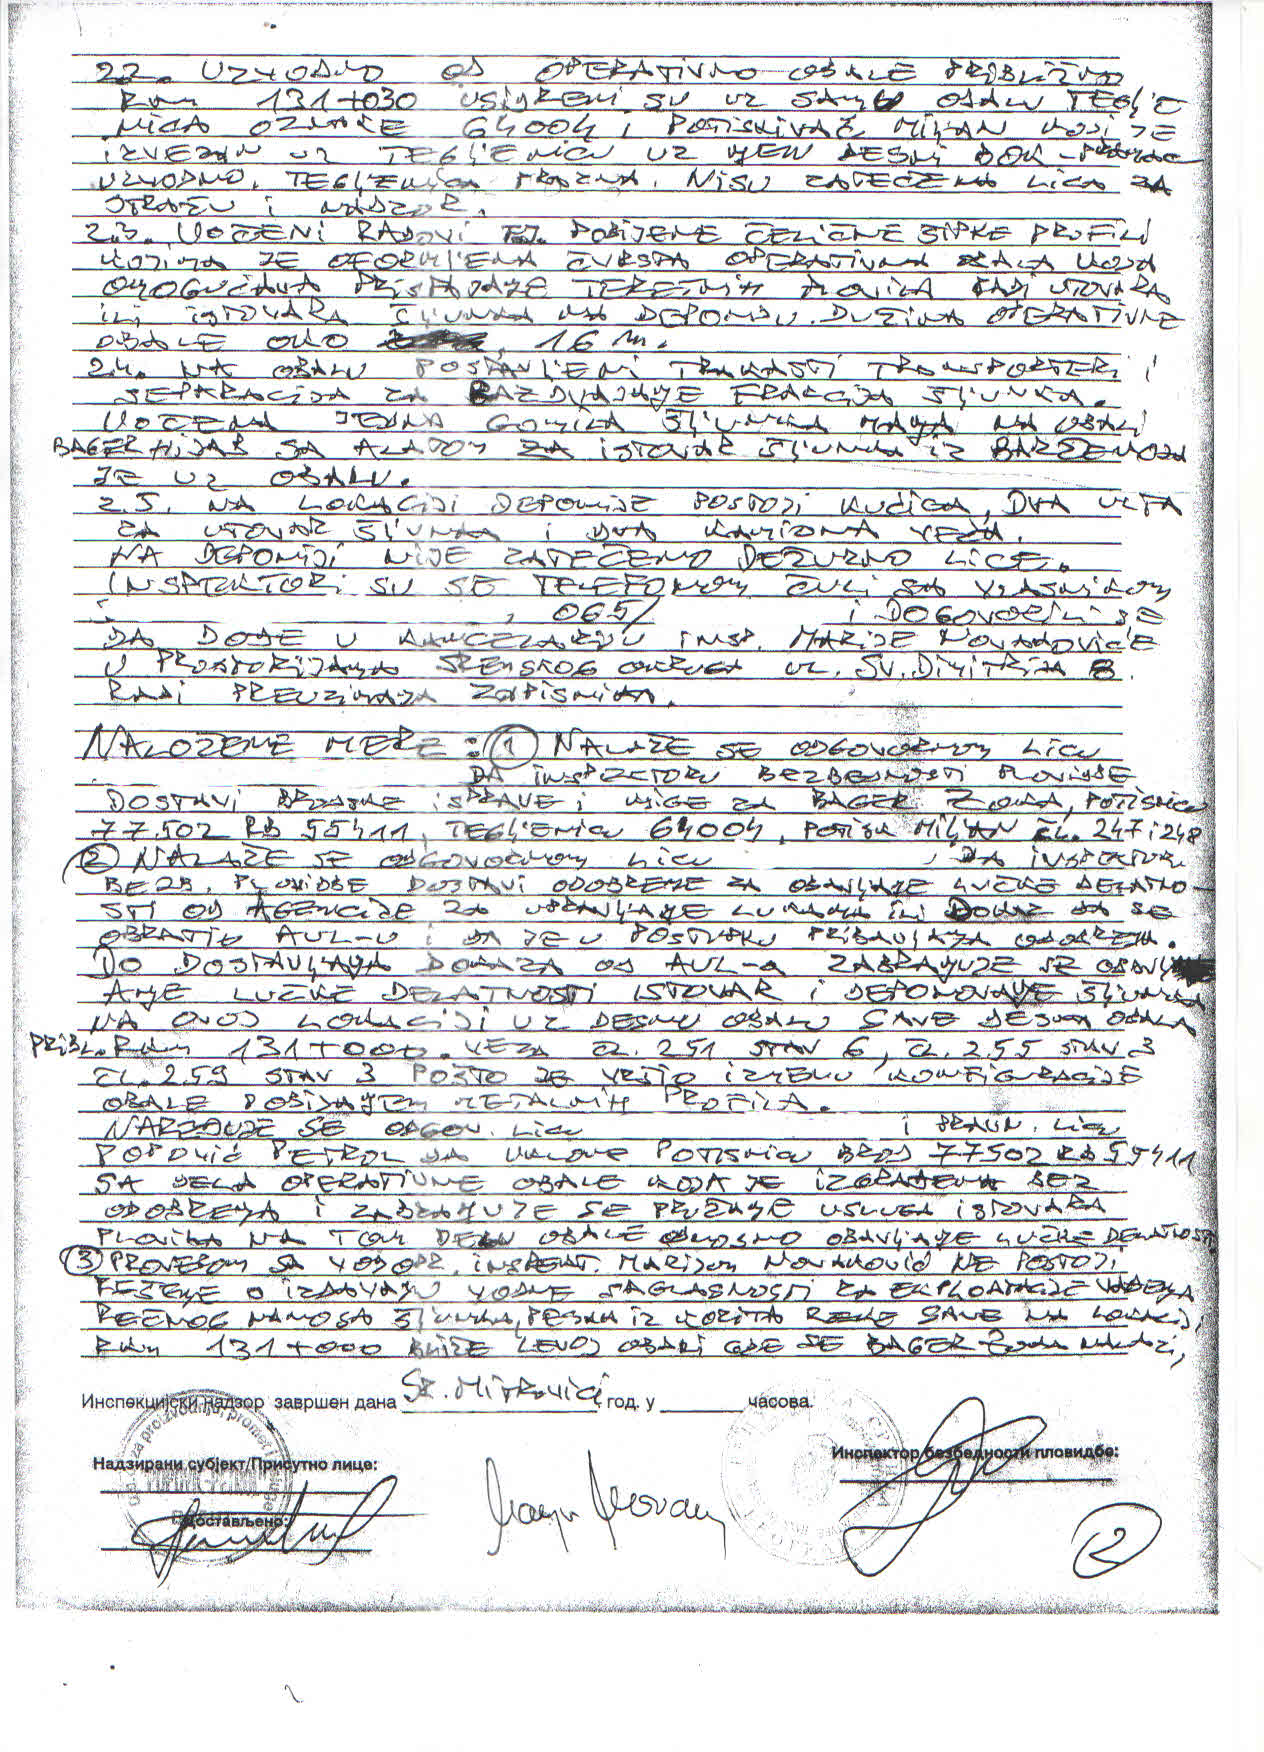 2.2. UZVODNO OD OPERATIVNO OBALE PRIBLIŽNO
RKM 131+030 USIDRENI SU UZ SAMU OBALU TEGLJE
NICA OZNAKE 64004 I POTISKIVAČ MILJAN KOJI JE
IZVEZAN UZ TEGLJENICU UZ NJEN DESNI BOK - PRAMAC
UZVODNO. TEGLJENICA PRAZNA. NISU ZATEČENA LICA ZA
STRAŽU I NADZOR.
2.3. UOČENI RADOVI TJ. POBIJENE ČELIČNE ŠIPKE PROFILI
KOJIMA JE OFORMLJENA ČVRSTA OPERATIVNA OBALA KOJA
OMOGUĆAVA PRISTAJANJE TERETNIH PLOVILA RADI UTOVARA
ILI ISTOVARA ŠLJUNKA NA DEPONIJU. DUŽINA OPERATIVNE
OBALE OKO 16 m.
2.4. NA OBALU POSTAVLJENI TRAKASTI TRANSPORTERI I
SEPARACIJA ZA RAZDVAJANJE FRAKCIJA ŠLJUNKA.
UOČENA JEDNA GOMILA ŠLJUNKA MANJA NA OBALI
BAGER HIJAB SA ALATOM ZA ISTOVAR ŠLJUNKA IZ BARŽE KOJA
JE UZ OBALU.
2.5. NA LOKACIJI DEPONIJE POSTOJI KUĆICA, DVA ULTA
ZA UTOVAR ŠLJUNKA I DVA KAMIONA VEĆA.
NA DEPONIJI NIJE ZATEČENO DEŽURNO LICE.
INSPEKTORI SU SE TELEFONOM ČULI SA VLASNIKOM
, 065/ I DOGOVORILI SE
DA DOĐE U KANCELARIJU INSP. MARIJE NOVAKOVIĆ
U PROSTORIJAMA SREMSKOG OKRUGA UL. SV. DIMITRIJA 8
RADI PREUZIMANJA ZAPISNIKA.
NALOŽENE MERE: 1 NALAŽE SE ODGOVORNOM LICU
DA INSPEKTORU BEZBEDNOSTI PLOVIDBE
DOSTAVI BRODSKE ISPRAVE I KNJIGE ZA BAGER ŽODA, POTISNICU
77.502 RB 55411, TEGLJENICU 64004, POTISK. MILJAN ČL. 247 i 248
2 NALAŽE SE ODGOVORNOM LICU , DA INSPEKTORU
BEZB. PLOVIDBE DOSTAVI ODOBRENJE ZA OBAVLJANJE LUČKE DELATNO-
STI OD AGENCIJE ZA UPRAVLJANJE LUKAMA ILI DOKAZ DA SE
OBRATIO AUL-U I DA JE U POSTUPKU PRIBAVLJANJA ODOBRENJA.
DO DOSTAVLJANJA DOKAZA OD AUL-a ZABRANJUJE SE OBAVLJ
ANJE LUČKE DELATNOSTI ISTOVAR I DEPONOVANJE ŠLJUNKA
NA OVOJ LOKACIJI UZ DESNU OBALU SAVE DESNA OBALA
PRIBL. RKM 131+000. VEZA ČL. 251 STAV 6, ČL. 255 STAV 3
ČL. 259 STAV 3 POŠTO JE VRŠIO IZMENU KONFIGURACIJE
OBALE POBIJANJEM METALNIH PROFILA.
NAREĐUJE SE ODGOV. LICU I PRAVN. LICU
POPOVIĆ PETROL DA UKLONE POTISNICU BROJ 77502 RB 55411
SA DELA OPERATIVNE OBALE KOJA JE IZGRAĐENA BEZ
ODOBRENJA I ZABRANJUJE SE PRUŽANJE USLUGA ISTOVARA
PLOVILA NA TOM DELU OBALE ODNOSNO OBAVLJANJE LUČKE DELATNOSTI
3 PROVEROM SA VODOPR. INSPEKT. MARIJOM NOVAKOVIĆ NE POSTOJI
REŠENJE O IZDAVANJU VODNE SAGLASNOSTI ZA EKSPLOATACIJU VAĐENJA
REČNOG NANOSA ŠLJUNKA, PESKA IZ KORITA REKE SAVE NA LOKACIJI,
RKM 131+000 BLIŽE LEVOJ OBALI GDE SE BAGER ŽODA NALAZI,
Инспекцијски надзор завршен дана SR. MITROVICI год. у часова.
Надзирани субјект/Присутно лице:
Инспектор безбедности пловидбе:
Достављено:
2